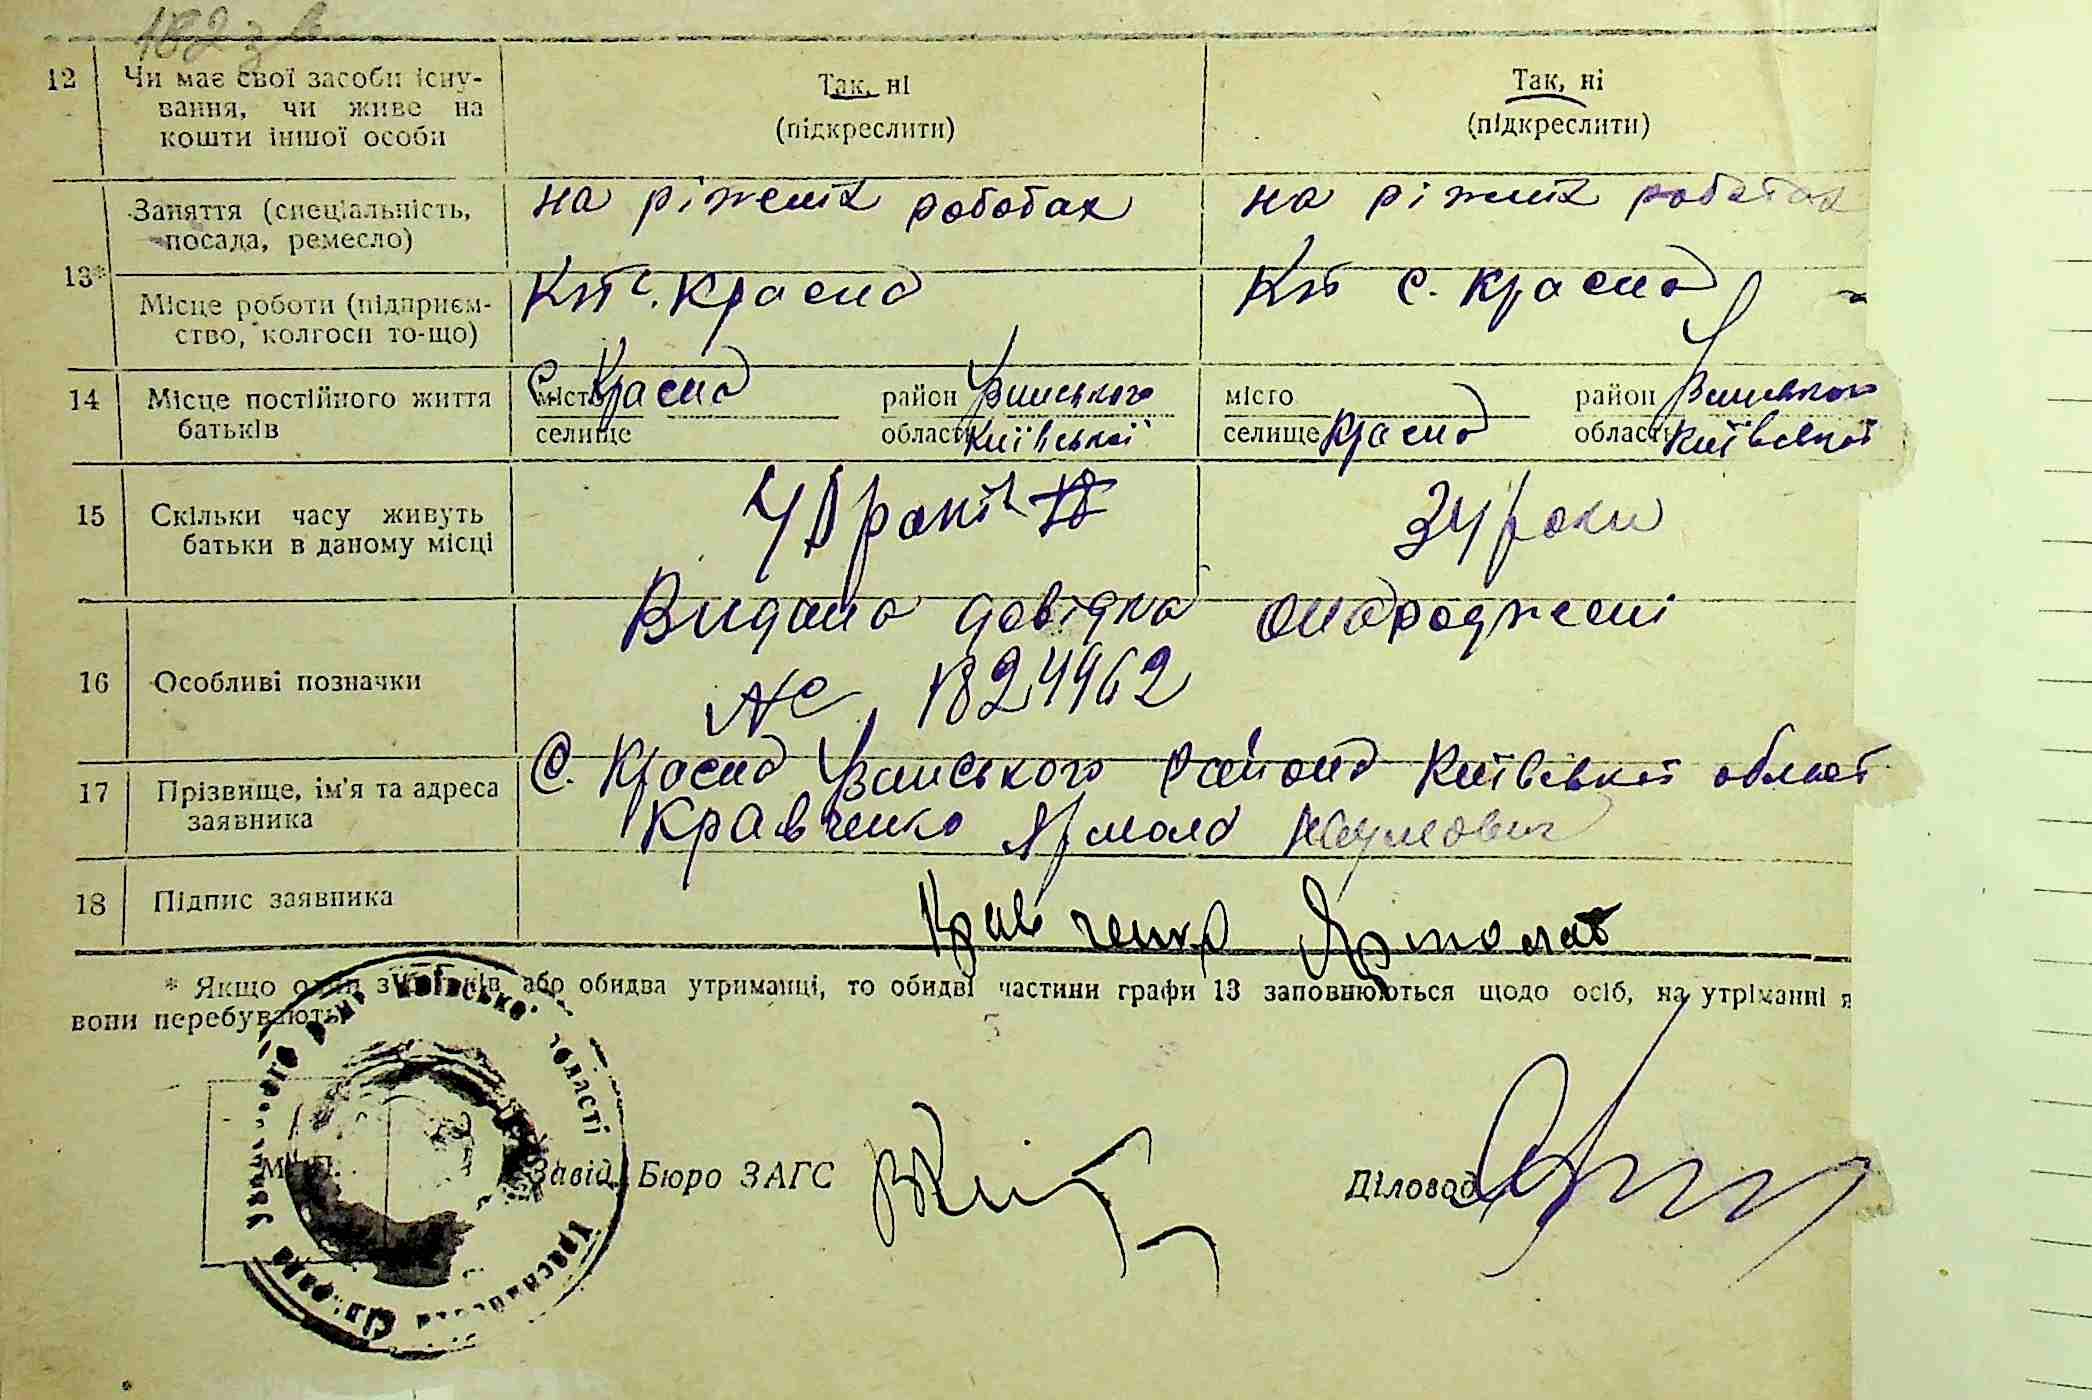 12 Чи має свої засоби існу-
вання, чи живе на
кошти іншої особи
Так, ні
(підкреслити)
Так, ні
(підкреслити)
13*
Заняття (спеціальність,
посада, ремесло)
на ріжних роботах
на ріжних роботах
Місце роботи (підприєм-
ство, колгосп то-що)
Кгт с. Красна
Кгт с. Красна
14 Місце постійного життя
батьків
С. Красна
місто
селище
район Узинського
область Київської
місто
селище Красна
район Узинського
область Київської
15 Скільки часу живуть
батьки в даному місці
40 років
34 роки
16 Особливі позначки
Видана довідка о народженні
№ 1824962
17 Прізвище, ім'я та адреса
заявника
С. Красна Узинського району Київської област
Кравченко Ярмола Наумович
18 Підпис заявника
Кравченко
* Якщо один з батьків або обидва утриманці, то обидві частини графи 13 заповнюються щодо осіб, на утріманні я
вони перебувають.
М. П.
Завід. Бюро ЗАГС
Діловод